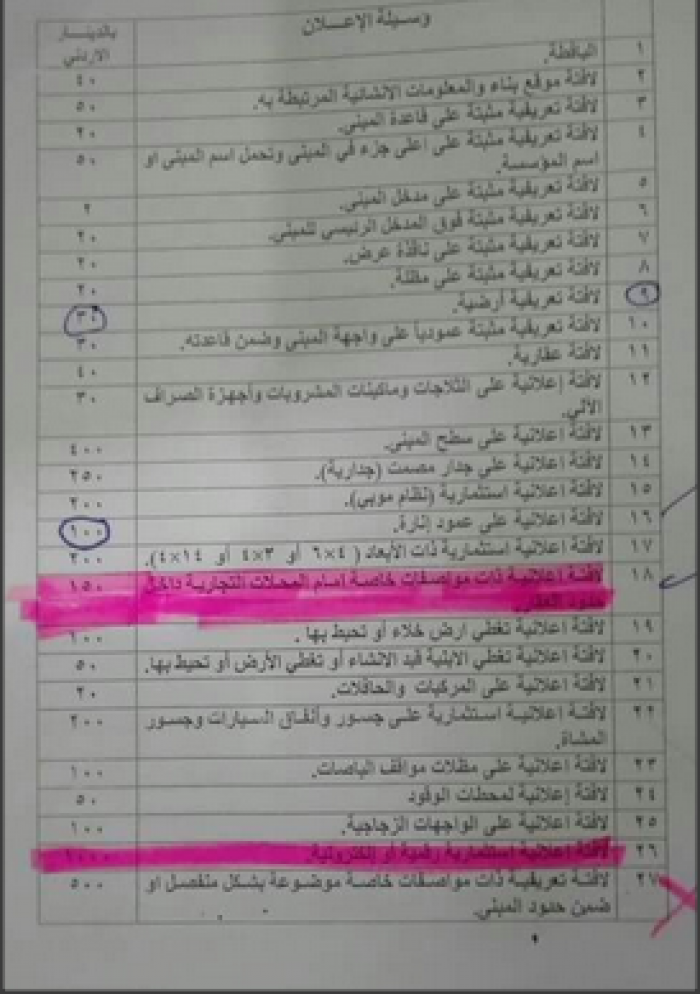 وسيلة الإعلان بالدينار
الاردني
١ اليافطة. ٤٠
٢ لافتة موقع بناء والمعلومات الانشائية المرتبطة به. ٥٠
٣ لافتة تعريفية مثبتة على قاعدة المبنى. ٢٠
٤ لافتة تعريفية مثبتة على اعلى جزء في المبنى وتحمل اسم المبنى او ٥٠
اسم المؤسسة.
٥ لافتة تعريفية مثبتة على مدخل المبنى. ٢
٦ لافتة تعريفية مثبتة فوق المدخل الرئيسي للمبنى. ٢٠
٧ لافتة تعريفية مثبتة على نافذة عرض. ٢٠
٨ لافتة تعريفية مثبتة على مظلة. ٢٠
٩ لافتة تعريفية أرضية. ٣٠
١٠ لافتة تعريفية مثبتة عمودياً على واجهة المبنى وضمن قاعدته. ٣٠
١١ لافتة عقارية. ٤٠
١٢ لافتة إعلانية على الثلاجات وماكينات المشروبات وأجهزة الصراف ٣٠
الآلي.
١٣ لافتة اعلانية على سطح المبنى. ٤٠٠
١٤ لافتة اعلانية على جدار مصمت (جدارية). ٢٥٠
١٥ لافتة اعلانية استثمارية (نظام موبي). ٢٠٠
١٦ لافتة اعلانية على عمود إنارة. ١٠٠
١٧ لافتة اعلانية استثمارية ذات الأبعاد ( ٤×٦ أو ٣×٤ أو ١٤×٤). ٢٠٠
١٨ لافتة اعلانية ذات مواصفات خاصة امام المحلات التجارية داخل ١٥٠
حدود العقار.
١٩ لافتة اعلانية تغطي ارض خلاء أو تحيط بها . ١٠٠
٢٠ لافتة اعلانية تغطي الابنية قيد الانشاء أو تغطي الأرض أو تحيط بها. ٥٠
٢١ لافتة اعلانية على المركبات والحافلات. ٢٠
٢٢ لافتة اعلانية استثمارية على جسور وأنفاق السيارات وجسور ٢٠٠
المشاة.
٢٣ لافتة اعلانية على مظلات مواقف الباصات. ١٠٠
٢٤ لافتة إعلانية لمحطات الوقود ٥٠
٢٥ لافتة اعلانية على الواجهات الزجاجية. ١٠٠
٢٦ لافتة اعلانية استثمارية رقمية أو إلكترونية.
٢٧ لافتة تعريفية ذات مواصفات خاصة موضوعة بشكل منفصل او ٥٠٠
ضمن حدود المبنى.
٩